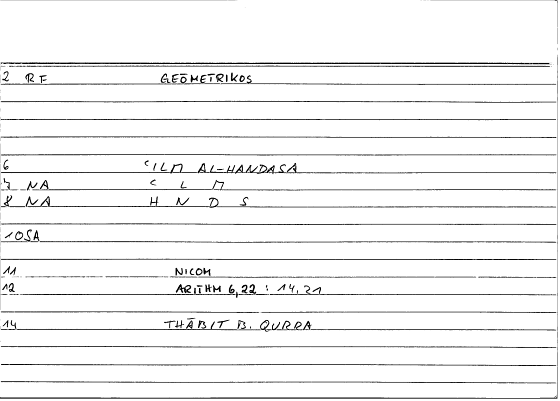 2 RF GEŌMETRIKOS
6 ʿILM AL-HANDASA
7 NA ʿ L M
8 NA H N D S
10SA
11 NICOM
12 ARITHM 6,22 : 14,21
14 THĀBIT B. QURRA